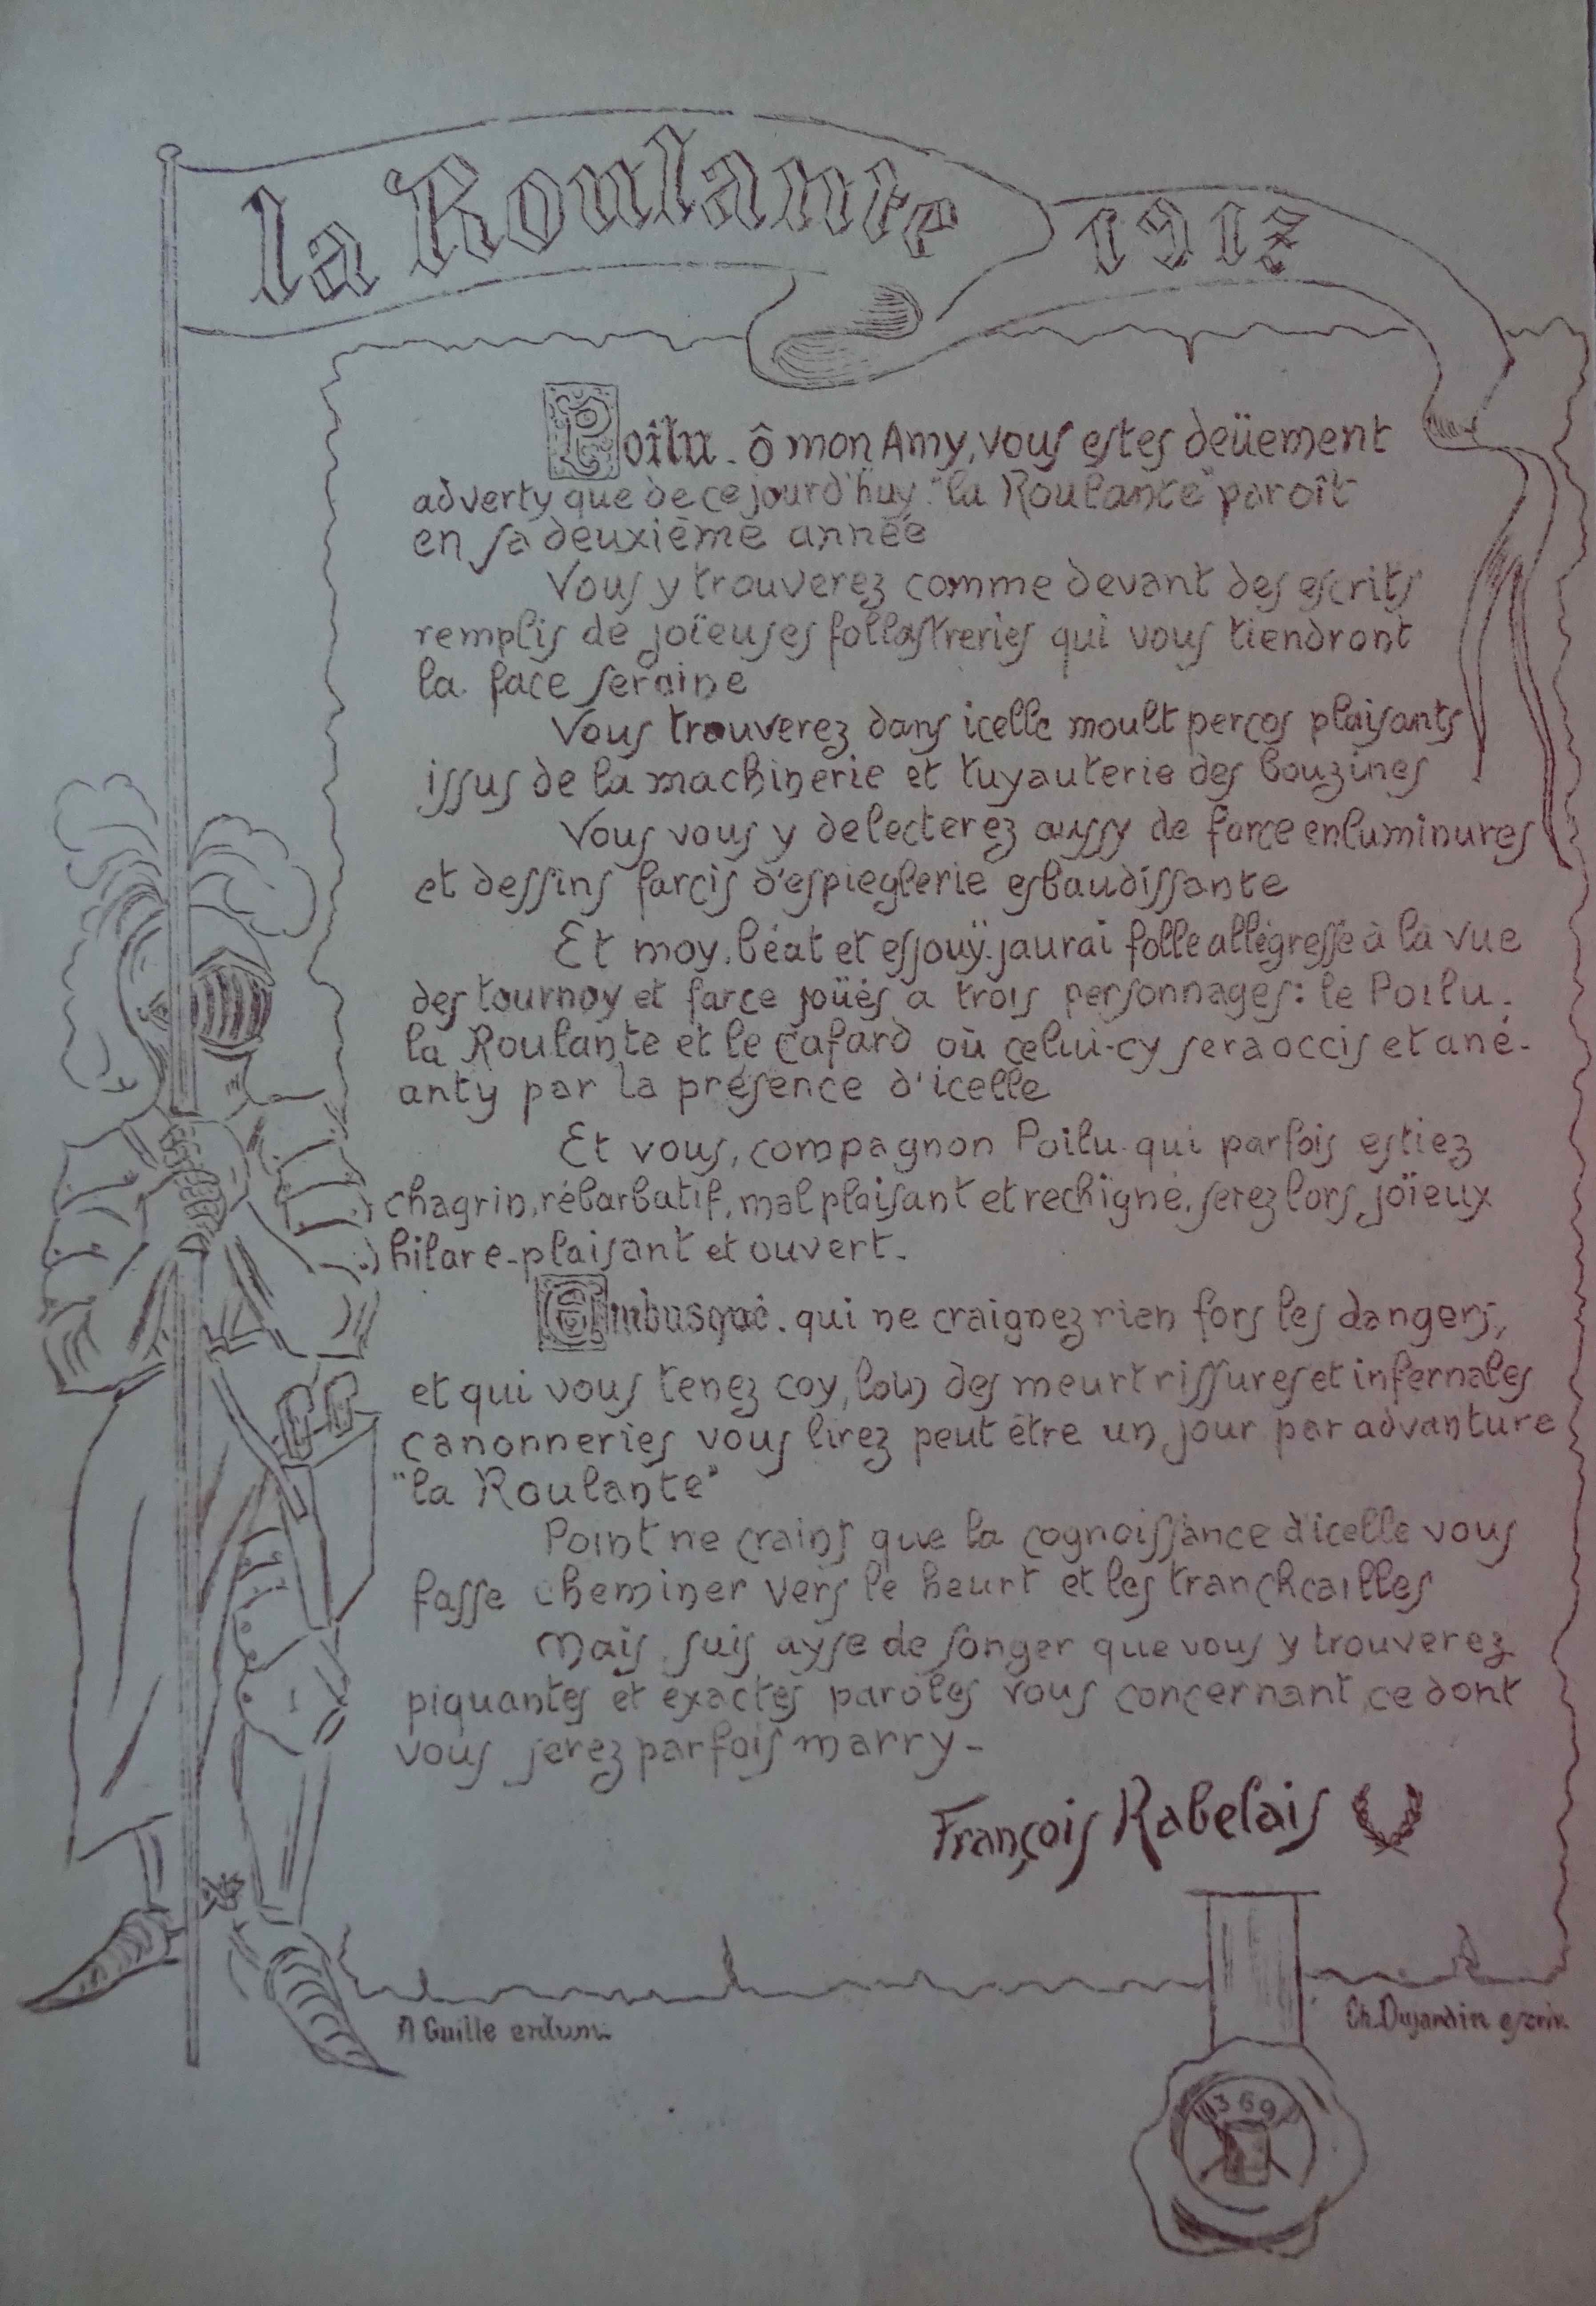 la Roulante 1917
Poilu - ô mon Amy, vous estes deüement
adverty que de ce jourd'huy "la Roulante" paroît
en sa deuxième année
Vous y trouverez comme devant des escrits
remplis de joïeuses follastreries qui vous tiendront
la face seraine
Vous trouverez dans icelle moult percos plaisants
issus de la machinerie et tuyauterie des bouzines
Vous vous y delecterez aussy de force enluminures
et dessins farcis d'espieglerie esbaudissante
Et moy, béat et esjouÿ, jaurai folle allégresse à la vue
des tournoy et farce joüés a trois personnages: le Poilu,
la Roulante et le Cafard où celui-cy sera occis et ané-
anty par la présence d'icelle
Et vous, compagnon Poilu qui parfois estiez
chagrin, rébarbatif, mal plaisant et rechigné, serez lors joïeux
hilare-plaisant et ouvert.
Embusqué, qui ne craignez rien fors les dangers,
et qui vous tenez coy, loin des meurtrissures et infernales
canonneries vous lirez peut être un jour par advanture
"la Roulante"
Point ne crains que la cognoissance d'icelle vous
fasse cheminer vers le heurt et les tranchcailles
Mais suis ayse de songer que vous y trouverez
piquantes et exactes paroles vous concernant, ce dont
vous serez parfois marry-
François Rabelais
A Guille enlum.
Ch. Dujardin escriv.
369